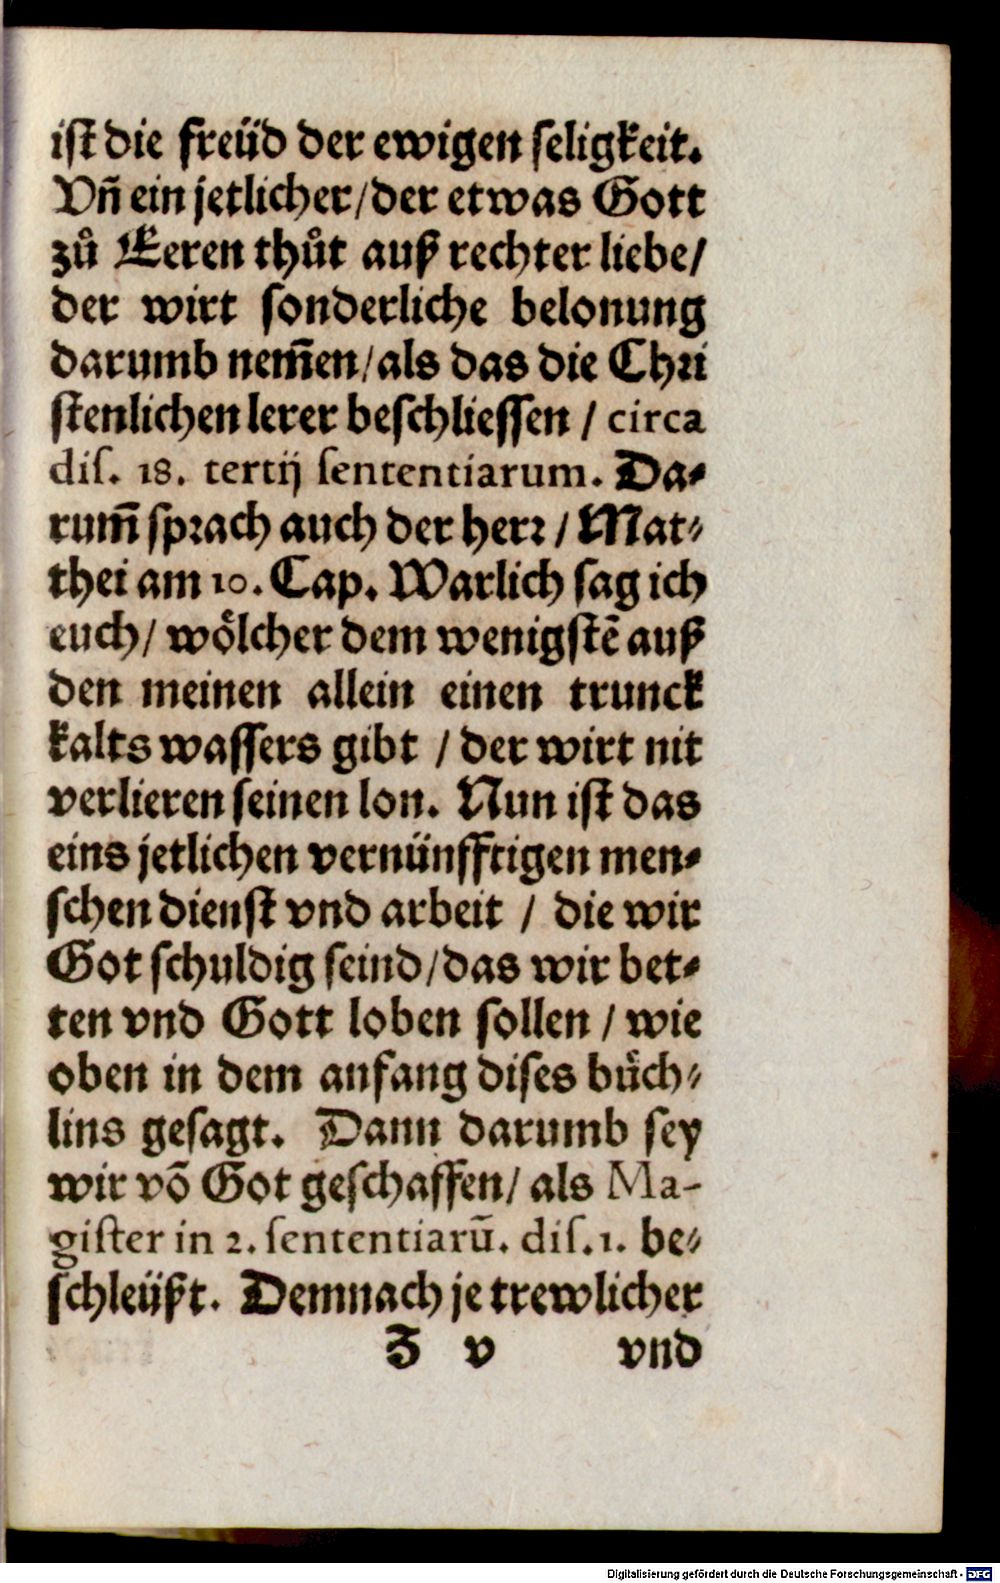 ist die freüd der ewigen seligkeit.
Vñ ein jetlicher/der etwas Gott
zů Eeren thůt auß rechter liebe/
der wirt sonderliche belonung
darumb nem̃en/als das die Chri
stenlichen lerer beschliessen / circa
dis. 18. tertij sententiarum. Da⸗
rum̃ sprach auch der herr / Mat⸗
thei am 10. Cap. Warlich sag ich
euch/ wölcher dem wenigstẽ auß
den meinen allein einen trunck
kalts wassers gibt / der wirt nit
verlieren seinen lon. Nun ist das
eins jetlichen vernünfftigen men⸗
schen dienst vnd arbeit / die wir
Got schuldig seind/das wir bet⸗
ten vnd Gott loben sollen / wie
oben in dem anfang dises büch⸗
lins gesagt. Dann darumb sey
wir võ Got geschaffen/ als Ma-
gister in 2. sententiarũ. dis.1. be⸗
schleüßt. Demnach je trewlicher
Z v vnd
Digitalisierung gefördert durch die Deutsche Forschungsgemeinschaft - DFG